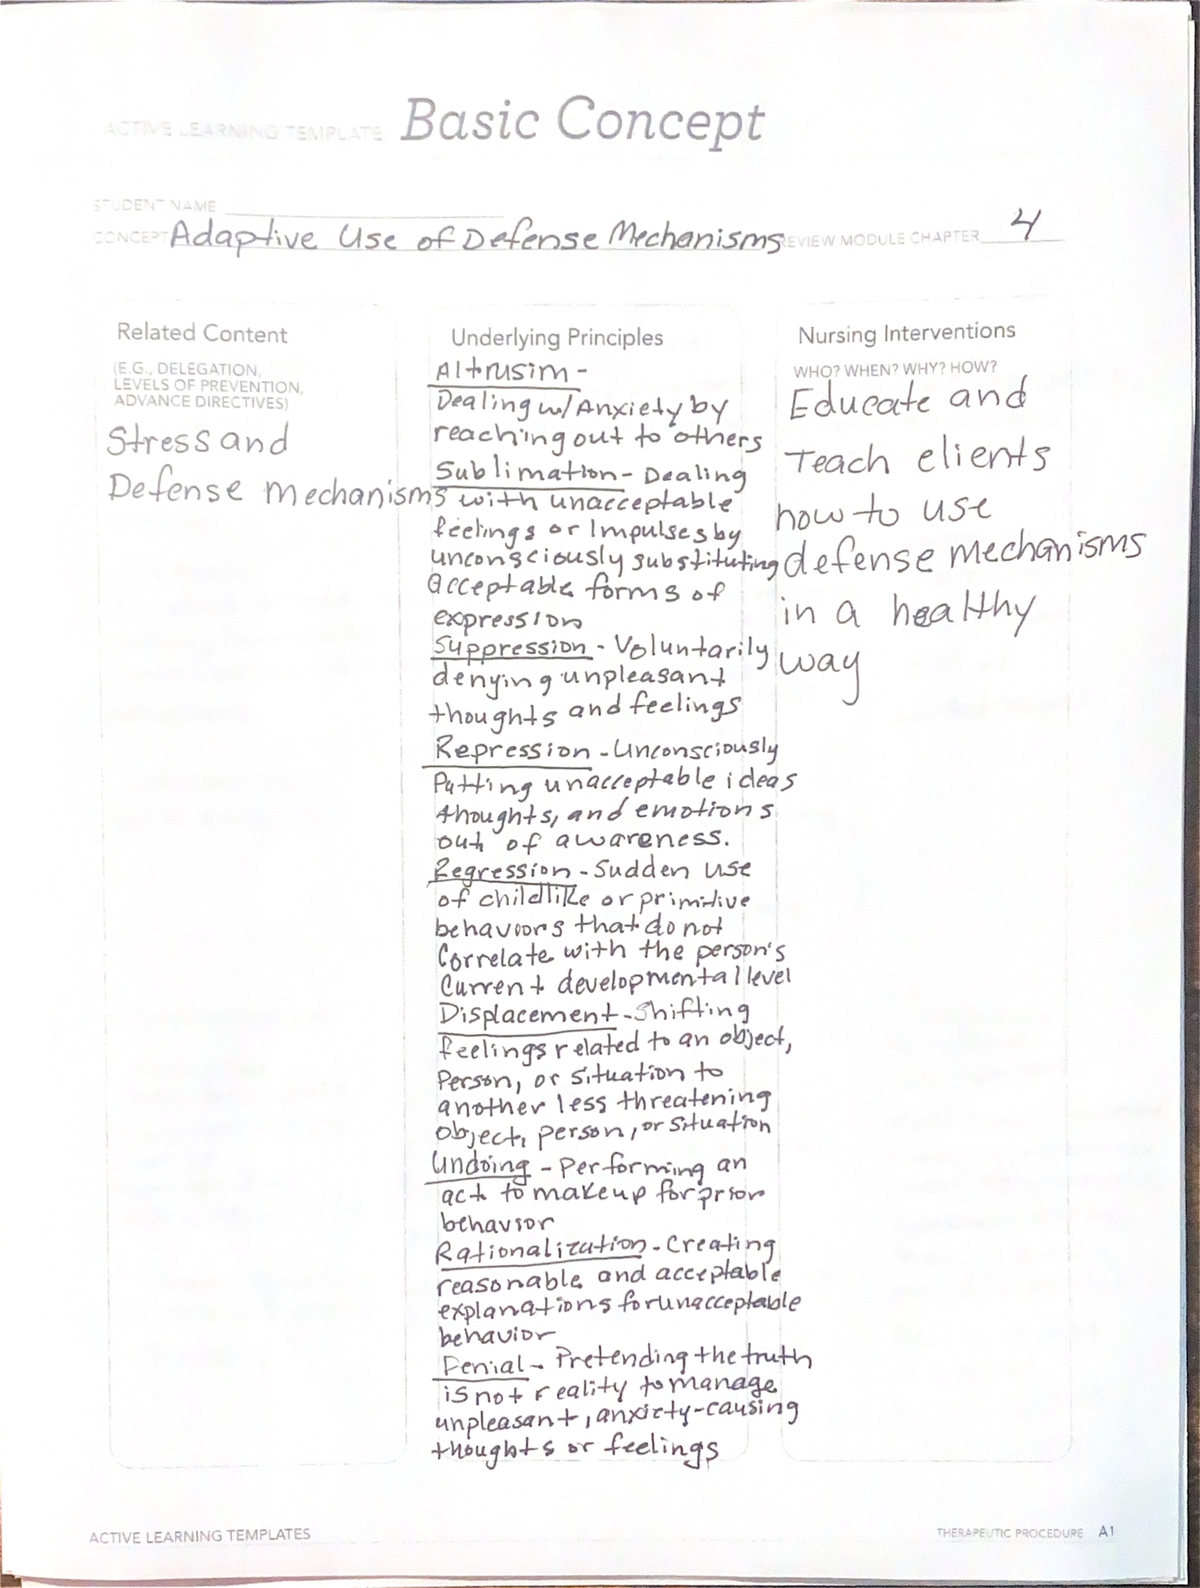 ACTIVE LEARNING TEMPLATE: Basic Concept
STUDENT NAME
CONCEPT Adaptive Use of Defense Mechanisms REVIEW MODULE CHAPTER 4
Related Content
(E.G., DELEGATION,
LEVELS OF PREVENTION,
ADVANCE DIRECTIVES)
Stress and
Defense mechanisms
Underlying Principles
Altrusim -
Dealing w/ Anxiety by
reaching out to others
Sublimation - Dealing
with unacceptable
feelings or Impulses by
unconsciously substituting
acceptable forms of
expression
Suppression - Voluntarily
denying unpleasant
thoughts and feelings
Repression - Unconsciously
Putting unacceptable ideas
thoughts, and emotions
out of awareness.
Regression - Sudden use
of childlike or primitive
behaviors that do not
Correlate with the person's
Current developmental level
Displacement - Shifting
feelings related to an object,
Person, or situation to
another less threatening
object, person, or situation
Undoing - Performing an
act to makeup for prior
behavior
Rationalization - Creating
reasonable and acceptable
explanations for unacceptable
behavior
Denial - Pretending the truth
is not reality to manage
unpleasant, anxiety-causing
thoughts or feelings
Nursing Interventions
WHO? WHEN? WHY? HOW?
Educate and
Teach clients
how to use
defense mechanisms
in a healthy
way
ACTIVE LEARNING TEMPLATES
THERAPEUTIC PROCEDURE A1